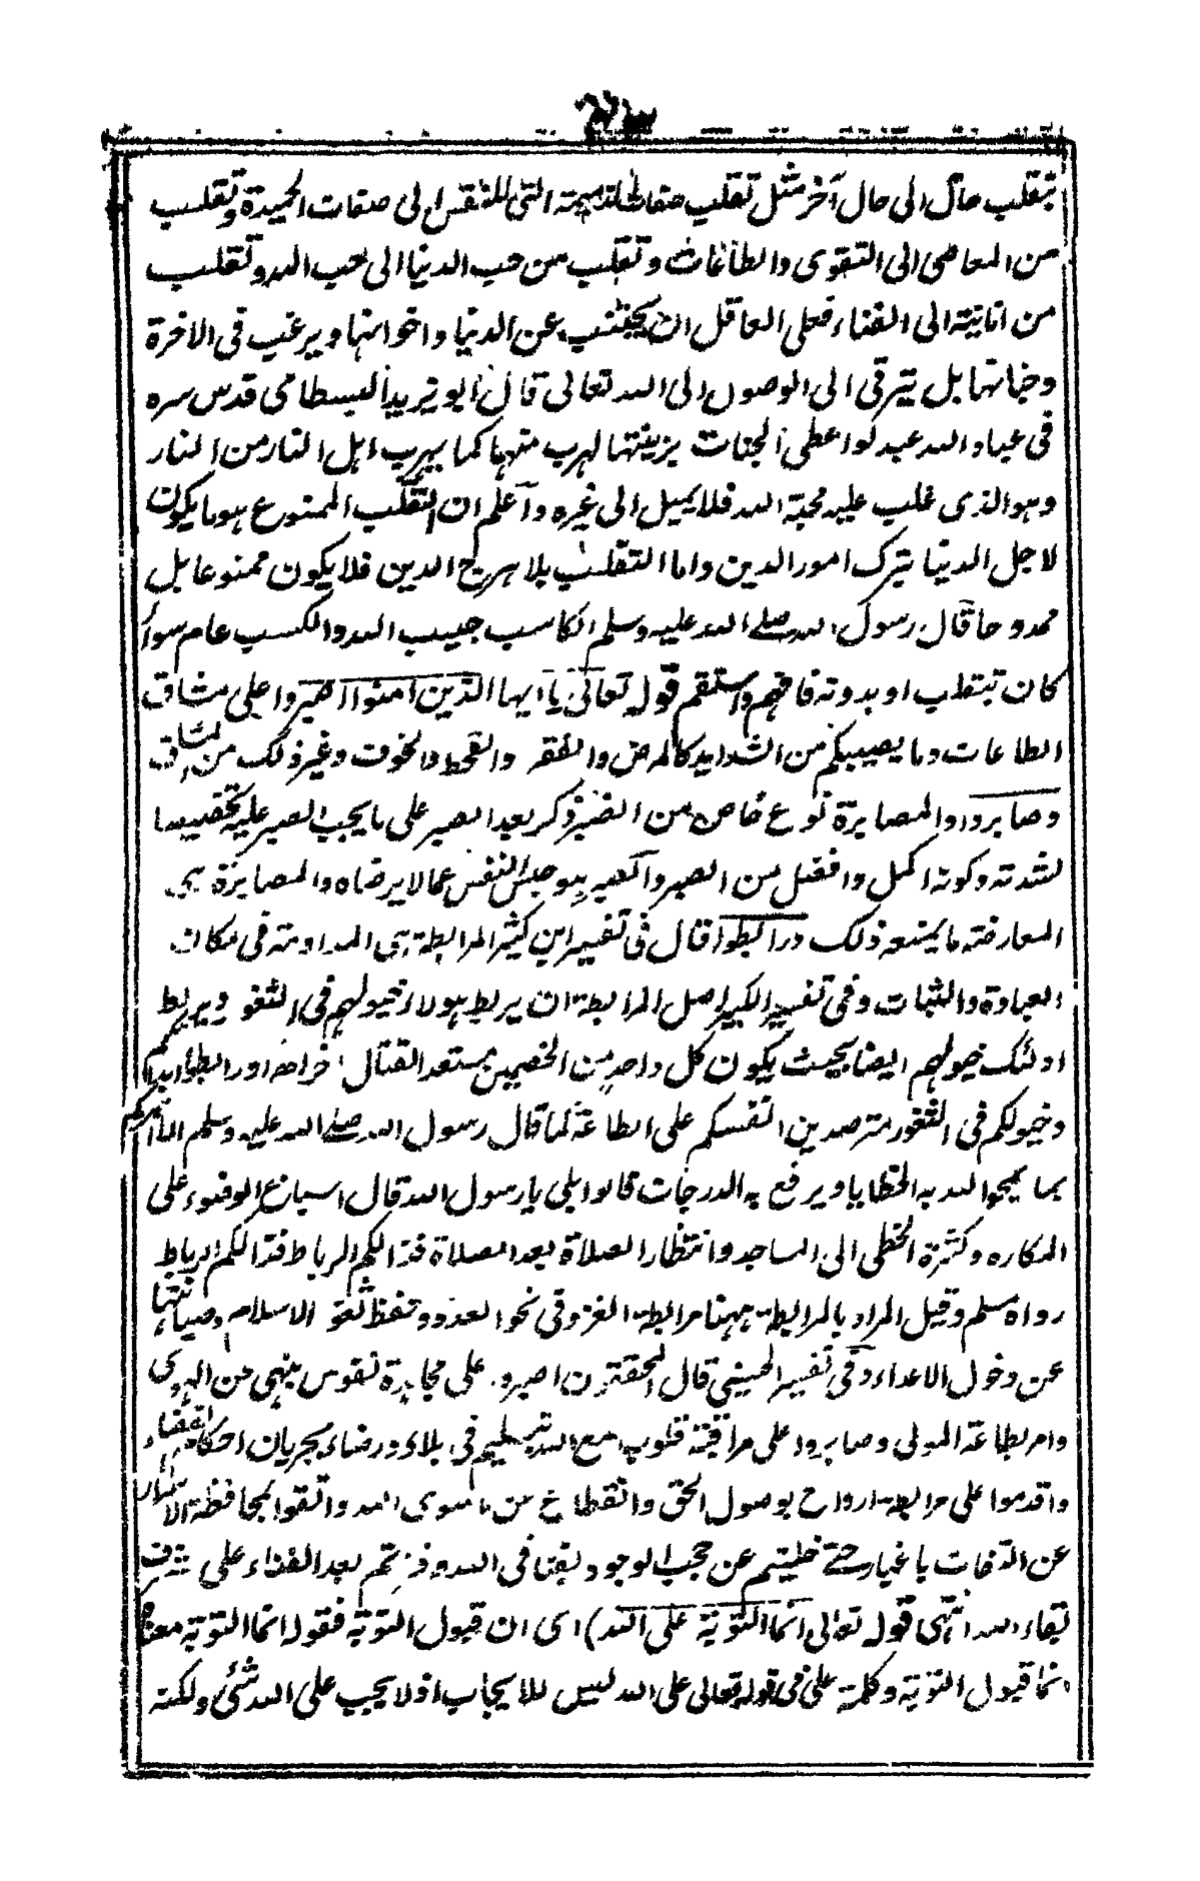 يتقلب حال الى حال آخر مثل تقلب صفات الذميمة التى للنفس الى صفات الحميدة وتقلب
من المعاصى الى التقوى والطاعات وتقلب من حب الدنيا الى حب الله وتقلب
من انانية الى الفناء فعلى العاقل ان يجتنب عن الدنيا واخوانها ويرغب فى الاخرة
بل يترقى الى الوصول الى الله تعالى قال ابو يزيد البسطامى قدس سره
فى عباد الله عبد لو اعطى الجنات بزينتها لهرب منها كما يهرب اهل النار من النار
وهو الذى غلب عليه محبة الله فلا يميل الى غيره وأعلم ان التقلب الممنوع هو ما يكون
لاجل الدنيا بترك امور الدين واما التقلب بلا هرج الدين فلا يكون ممنوعا بل
ممدوحا قال رسول الله صلے الله عليه وسلم الكاسب حبيب الله والكسب عام سواء
كان بتقلب او بدونه فافهم واستقم قوله تعالى يا ايها الذين امنوا اصبروا على مشاق
الطاعات وما يصيبكم من الشدايد كالمرض والفقر والقحط والخوف وغير ذلك من المشاق
وصابروا والمصابرة نوع خاص من الصبر ذكر بعد الصبر على ما يجب الصبر عليه تخصيصا
لشدته وكونه اكمل وافضل من الصبر والصبر هو حبس النفس عما لا يرضاه والمصابرة هى
المعارضة ما يمنعه ذلك ورابطوا قال فى تفسير ابن كثير المرابطة هى المداومة فى مكان
العبادة والثبات وفى تفسير الكبير اصل المرابطة ان يربط هولاء خيولهم فى الثغور ويربط
اولئك خيولهم ايضا بحيث يكون كل واحد من الخصمين مستعد القتال اخرا ورابطوا ابدانكم
وخيولكم فى الثغور مترصدين انفسكم على الطاعة كما قال رسول الله صلے الله عليه وسلم الا اخبركم
بما يمحو الله به الخطايا ويرفع به الدرجات قالوا بلى يا رسول الله قال اسباغ الوضوء على
المكاره وكثرة الخطى الى المساجد وانتظار الصلاة بعد الصلاة فذالكم الرباط فذالكم الرباط
رواه مسلم وقيل المراد بالمرابطة ههنا مرابطة الغزو فى نحو العدو وحفظ ثغور الاسلام وصيانتها
عن دخول الاعداء وفى تفسير الحسينى قال المحققون اصبروا على مجاهدة نفوس بنهى عن الهوى
وامر بطاعة المولى وصابروا على مراقبة قلوب مع الله بتسليم فى بلاء ورضاء بجريان احكام قضاء
واقدموا على مرابطة ارواح بوصول الحق وانقطاع عن ما سوى الله واتقوا بمحافظة الاسرار
عن التفات باغيار حتے خليتم عن حجب الوجود بفنا فى الله وفزتم بعد الفناء على شرف
بقاء الله انتهى قوله تعالى انما التوبة على الله) اى ان قبول التوبة فقوله انما التوبة معناه
انما قبول التوبة وكلمة على فى قوله تعالى على الله ليس للايجاب اذ لا يجب على الله شئ ولكنه